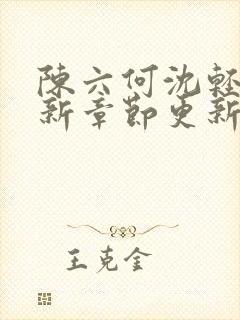 陳六何沈輕
新章節更新
王克金